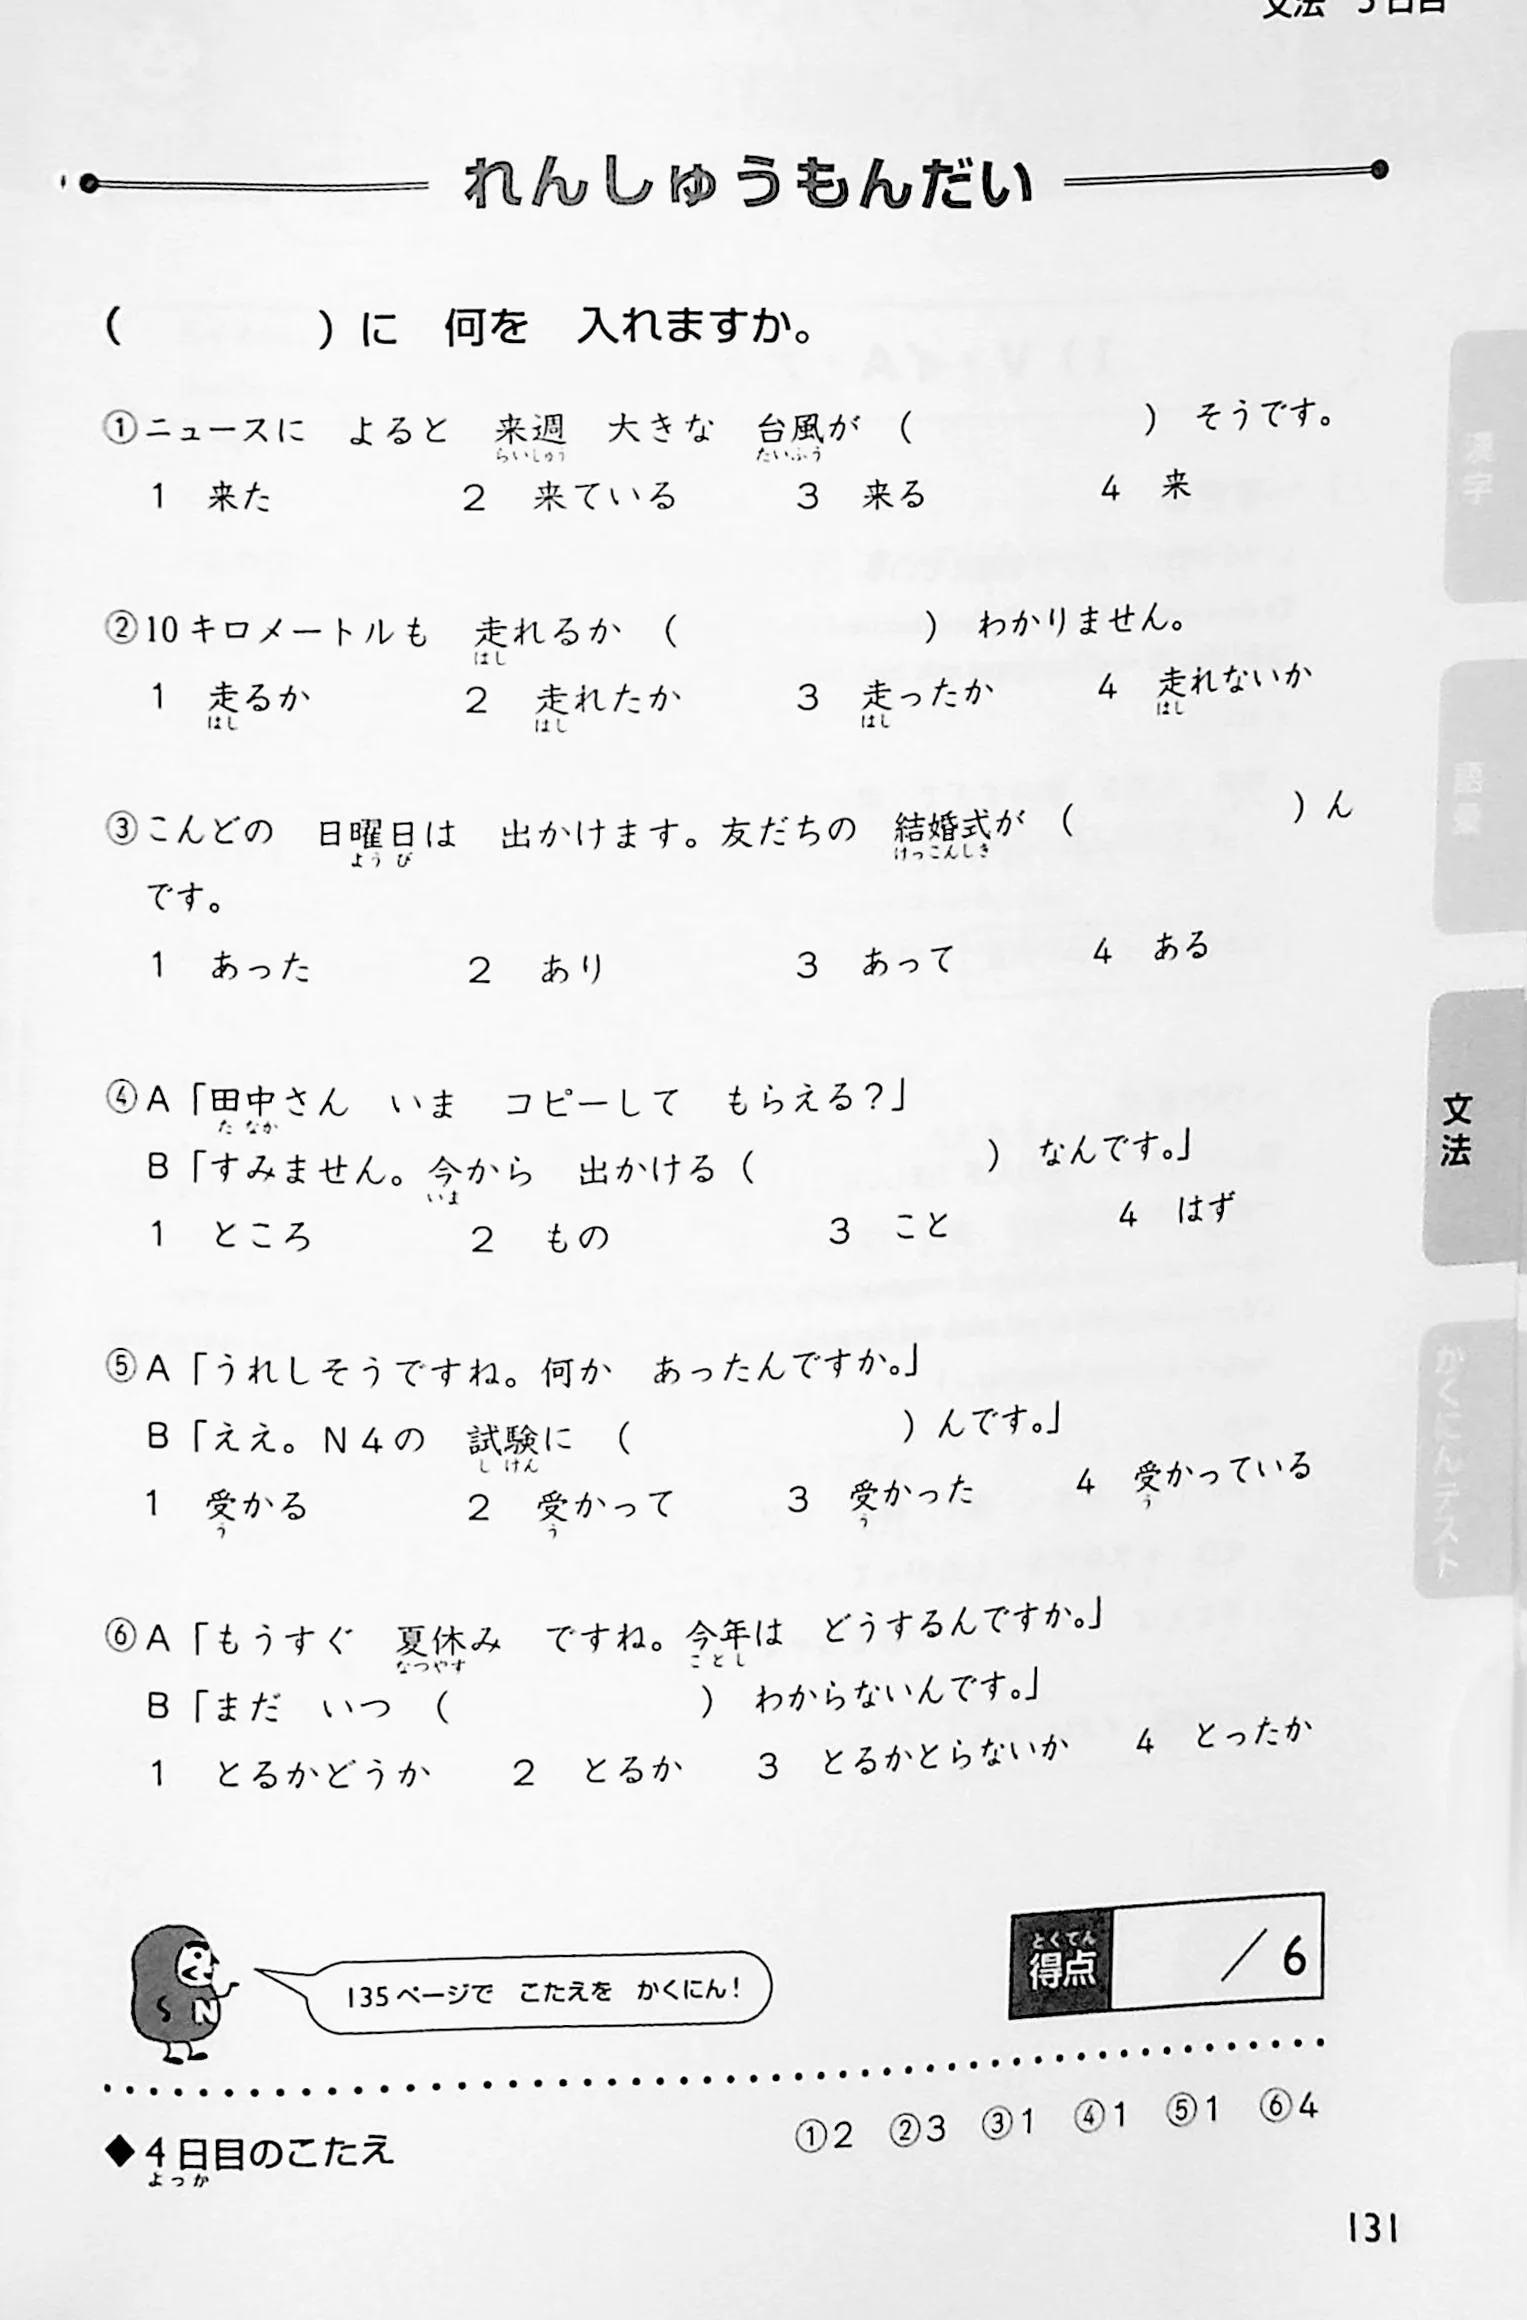 文法　5日目
れんしゅうもんだい
(　　　　)に　何を　入れますか。
①ニュースに　よると　来週　大きな　台風が　(　　　　)　そうです。
らいしゅう　たいふう
1　来た　2　来ている　3　来る　4　来
②10キロメートルも　走れるか　(　　　　)　わかりません。
はし
1　走るか　2　走れたか　3　走ったか　4　走れないか
はし　はし　はし　はし
③こんどの　日曜日は　出かけます。友だちの　結婚式が　(　　　　)ん
ようび　けっこんしき
です。
1　あった　2　あり　3　あって　4　ある
④A「田中さん　いま　コピーして　もらえる？」
たなか
B「すみません。今から　出かける(　　　　)　なんです。」
いま
1　ところ　2　もの　3　こと　4　はず
⑤A「うれしそうですね。何か　あったんですか。」
B「ええ。N4の　試験に　(　　　　)んです。」
しけん
1　受かる　2　受かって　3　受かった　4　受かっている
う　う　う　う
⑥A「もうすぐ　夏休み　ですね。今年は　どうするんですか。」
なつやす　ことし
B「まだ　いつ　(　　　　)　わからないんです。」
1　とるかどうか　2　とるか　3　とるかとらないか　4　とったか
N
135ページで　こたえを　かくにん！
とくてん
得点　／6
◆4日目のこたえ　①2　②3　③1　④1　⑤1　⑥4
よっか
131
漢字
語彙
文法
かくにんテスト